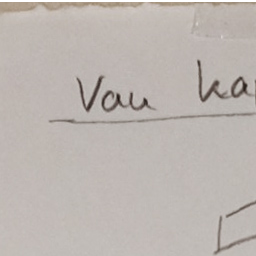 Van ka